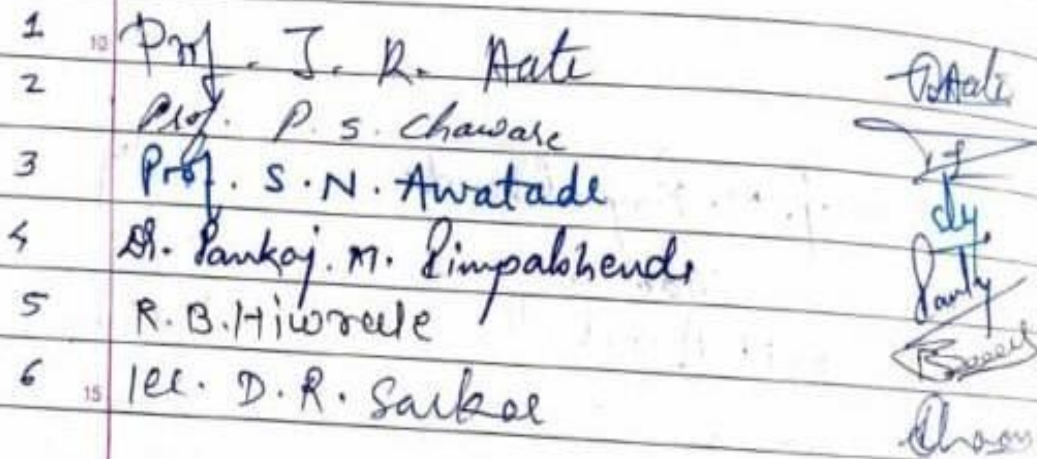 1 10 Prof. J. R. Aate
2 Prof. P. S. Chaware
3 Prof. S. N. Awatade
4 Dr. Pankaj. M. Pimpalshende
5 R. B. Hiwrale
6 15 D. R. Sarkar